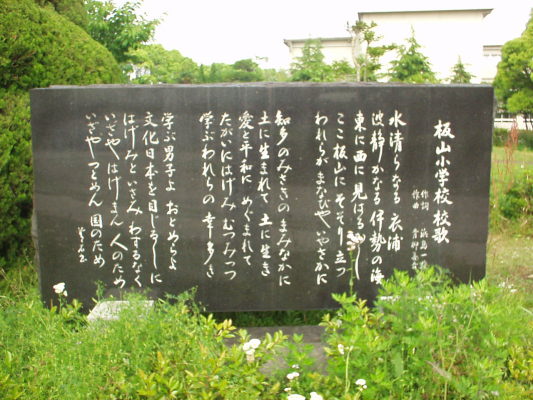 板山小学校 校歌
作詞 浜島一
作曲
水清らなる 衣浦
波静かなる 伊勢の海
東に西に 見はるかし
ここ板山に そそり立つ
われらが まなびや いやさかに
知多のみさきの まみなかに
土に生まれて 土に生き
愛と平和に めぐまれて
たがいにはげみ むつみつつ
学ぶ われらの 幸多き
学ぶ男子よ おとめらよ
文化日本を 目じるしに
はげみと いさみ わするなく
いざや はげまん 人のため
いざや つとめん 国のため